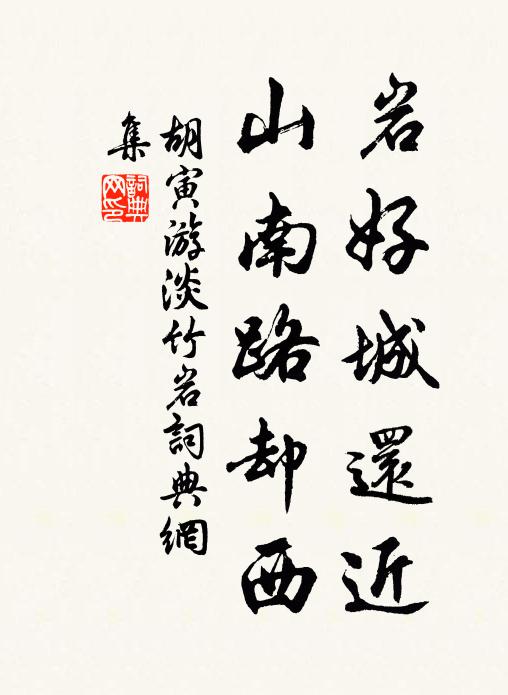 岩好城還近
山南路却西
胡寅游淡竹岩詞典網
集
詞典
网印